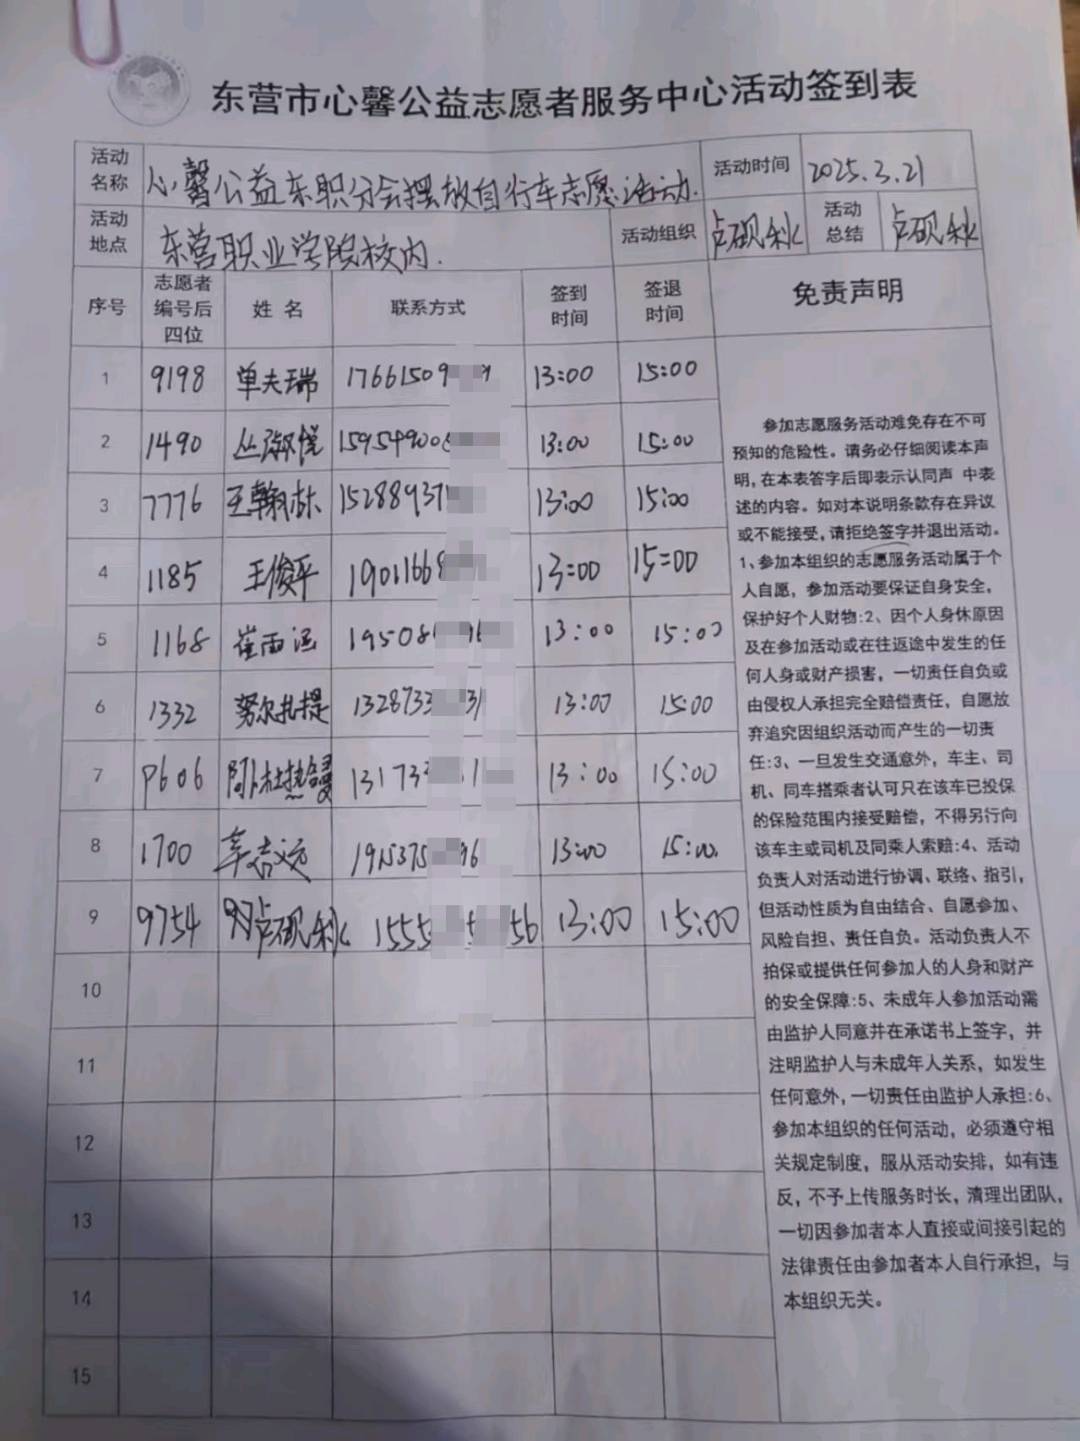 东营市心馨公益志愿者服务中心活动签到表
活动名称 心馨公益东职分会摆放自行车志愿活动. 活动时间 2025.3.21
活动地点 东营职业学院校内. 活动组织 卢砚秋 活动总结 卢砚秋
序号 志愿者编号后四位 姓名 联系方式 签到时间 签退时间 免责声明
1 9198 单夫瑞 17661509 13:00 15:00
2 1490 丛淑悦 15954900 13:00 15:00
3 7776 王翰林 15288937 13:00 15:00
4 1185 王俊平 1901166 13:00 15:00
5 1168 崔雨涵 19508 13:00 15:00
6 1332 努尔扎提 1328733 31 13:00 15:00
7 P606 阿卜杜热合曼 13173 13:00 15:00
8 1700 1915375 96 13:00 15:00.
9 9754 卢砚秋 1555 56 13:00 15:00
10
11
12
13
14
15
参加志愿服务活动难免存在不可
预知的危险性。请务必仔细阅读本声
明,在本表答字后即表示认同声 中表
述的内容。如对本说明条款存在异议
或不能接受,请拒绝签字并退出活动。
1、参加本组织的志愿服务活动属于个
人自愿，参加活动要保证自身安全,
保护好个人财物:2、因个人身休原因
及在参加活动或在往返途中发生的任
何人身或财产损害，一切责任自负或
由侵权人承担完全赔偿责任，自愿放
弃追究因组织活动而产生的一切责
任:3、一旦发生交通意外，车主、司
机、同车搭乘者认可只在该车已投保
的保险范围内接受赔偿，不得另行向
该车主或司机及同乘人索赔:4、活动
负责人对活动进行协调、联络、指引,
但活动性质为自由结合、自愿参加、
风险自担、责任自负。活动负责人不
拍保或提供任何参加人的人身和财产
的安全保障:5、未成年人参加活动需
由监护人同意并在承诺书上签字，并
注明监护人与未成年人关系，如发生
任何意外,一切责任由监护人承担:6、
参加本组织的任何活动，必须遵守相
关规定制度，服从活动安排，如有违
反，不予上传服务时长，清理出团队,
一切因参加者本人直接或间接引起的
法律责任由参加者本人自行承担，与
本组织无关。